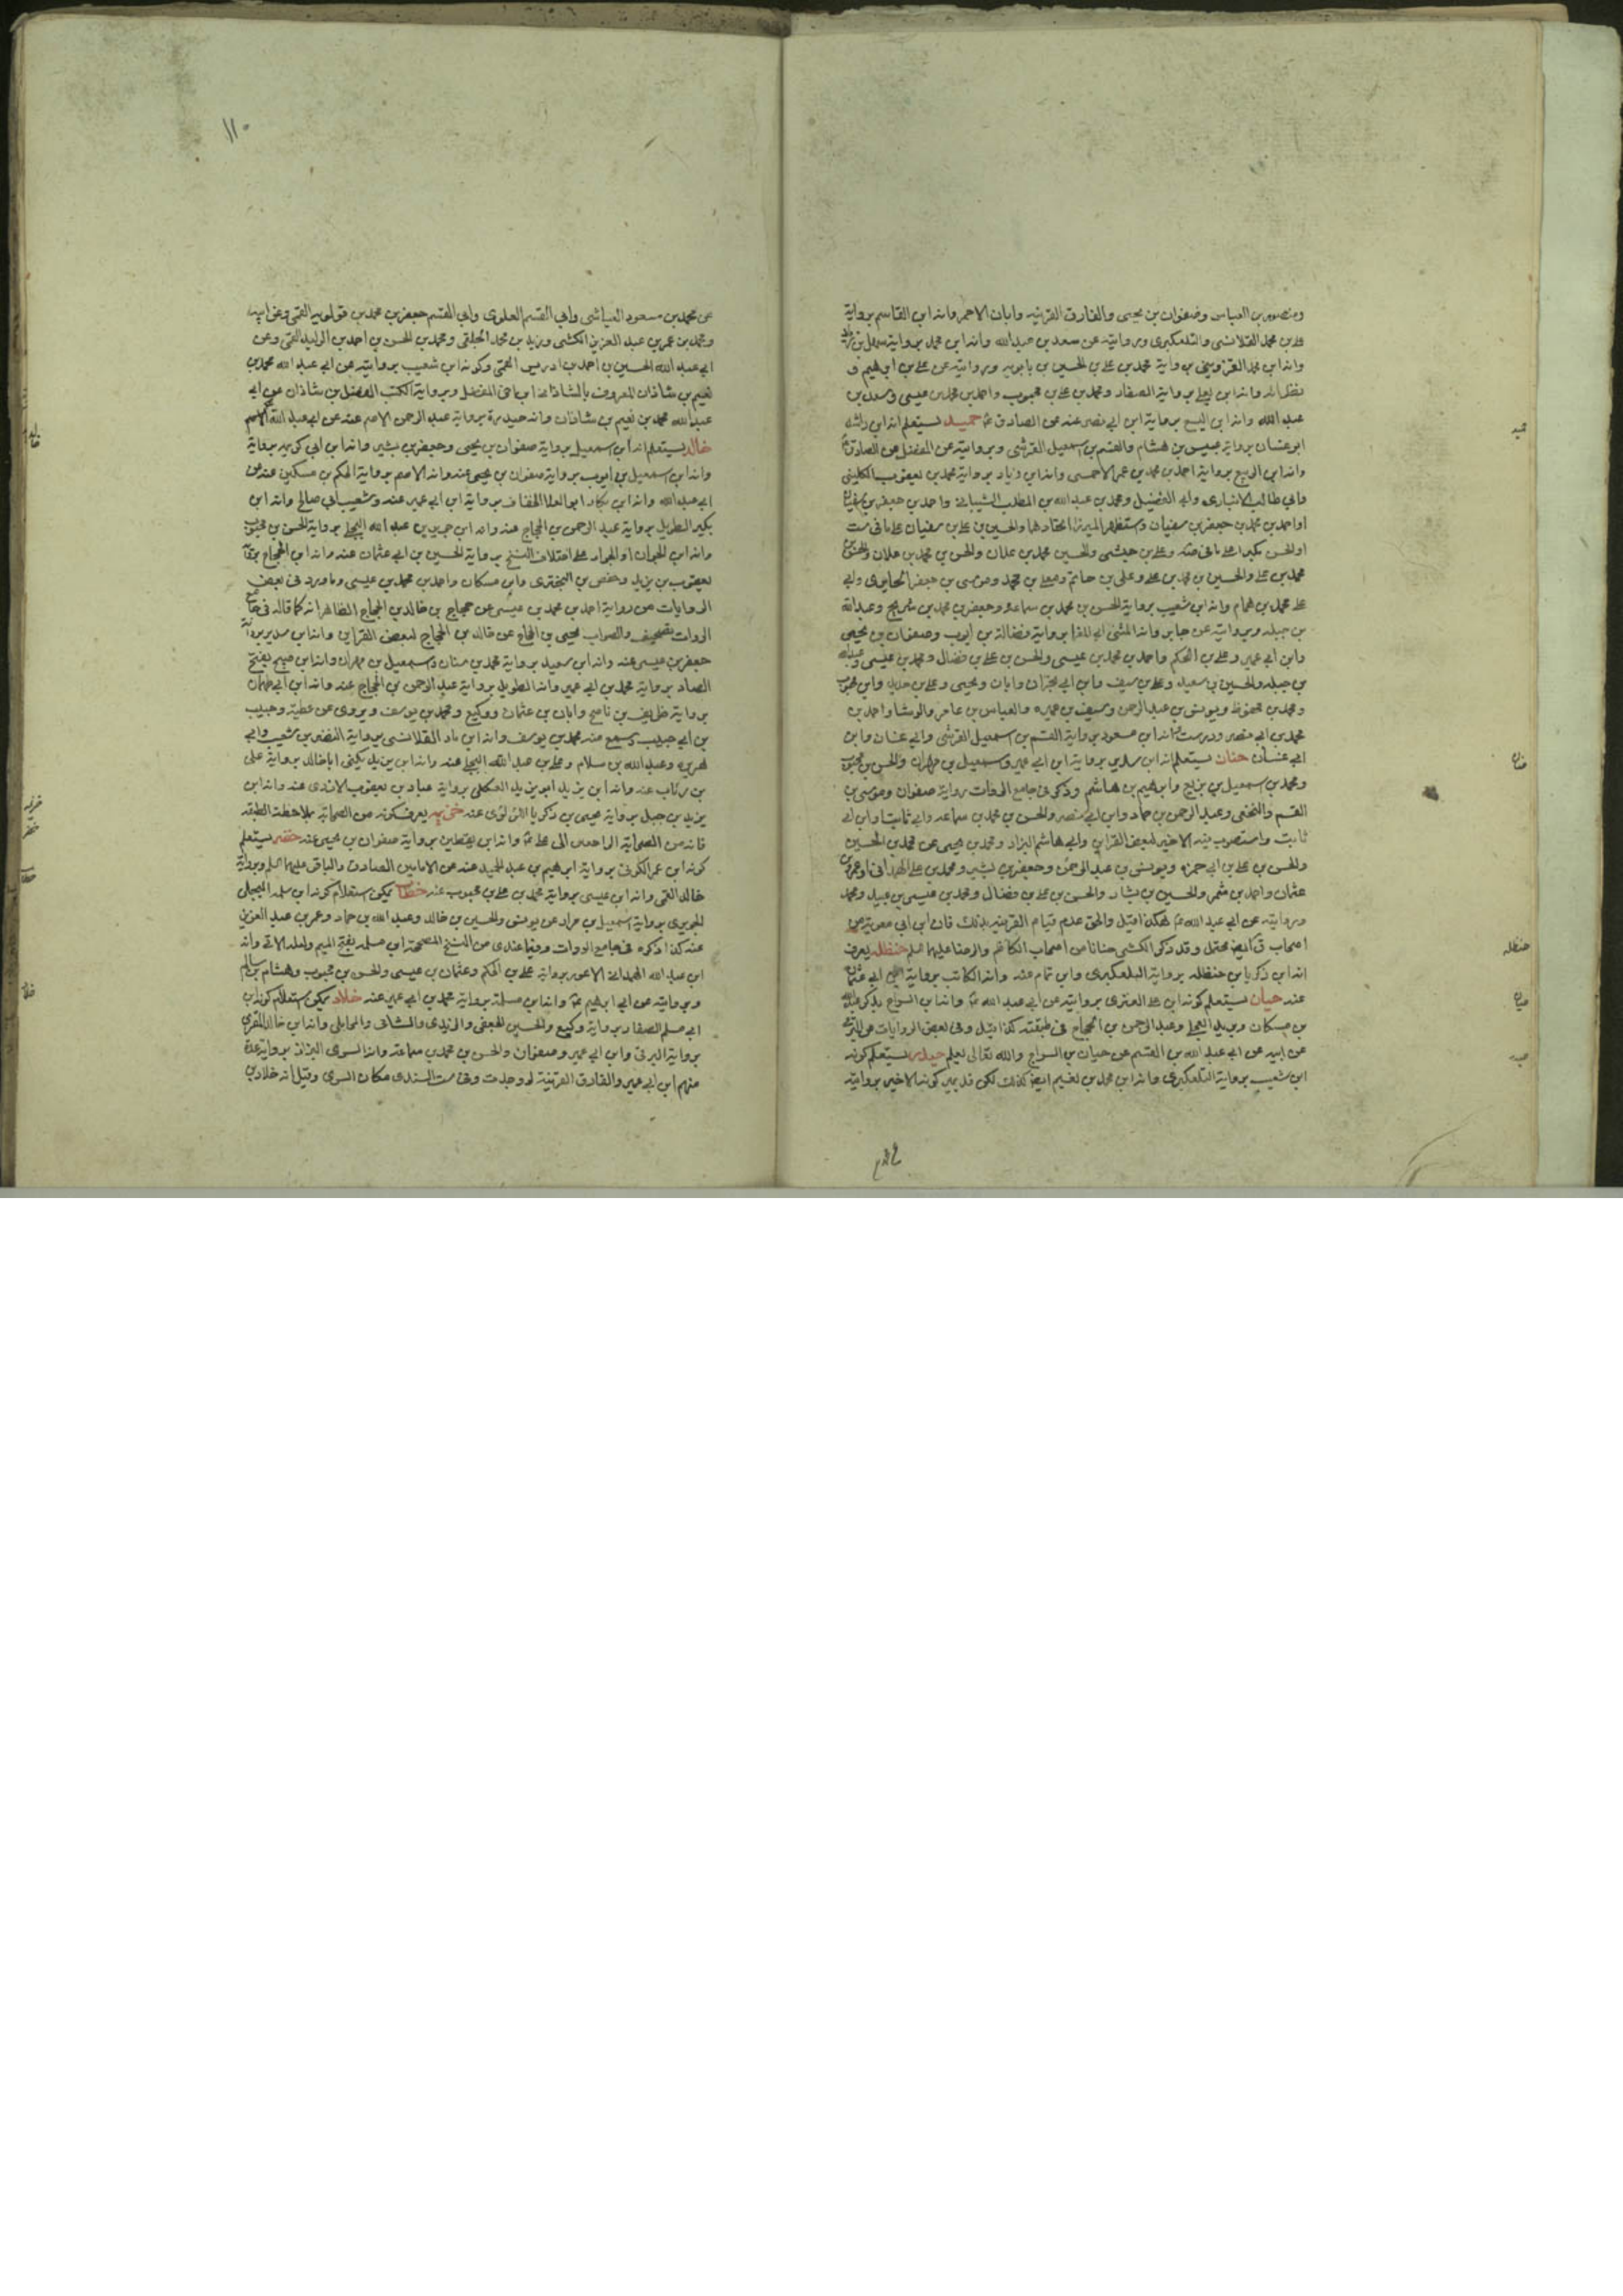 ومنصور بن العباس وصفوان بن يحيى والفارق القرينه وابان الاحمر وانه ابن القاسم برواية
علي بن محمد القلانسي والتلعكبرى وبروايته عن سعد بن عبدالله وانه ابن محمد برواية سهل بن زياد
وانه ابن محمد القزوينى برواية محمد بن على بن الحسين بن بابويه وبروايته عن على بن ابرهيم و
نظرائه وانه ابن يعلى برواية الصفار ومحمد بن على بن محبوب واحمد بن محمد بن عيسى وسعد بن
عبد الله وانه ابن اليسع برواية ابن ابى نصر عنه عن الصادق ع حميد يستعلم انه ابن راشد
ابو غسان برواية عبيس بن هشام والقسم بن اسمعيل القرشى وبروايته عن المفضل عن الصادق ع
وانه ابن الربيع برواية احمد بن محمد بن عمر الاحمسى وانه ابن زياد برواية محمد بن يعقوب الكلينى
وابى طالب الانبارى وابى المفضل ومحمد بن عبد الله بن المطلب الشيبانى واحمد بن جعفر بن سفيان
او احمد بن محمد بن جعفر بن سفيان واستظهر الميرزا اتحادهما والحسين بن على بن سفيان على ما فى ست
محمد بن على والحسين بن محمد بن على وعلى بن حاتم ومعلى بن محمد وموسى بن جعفر الحايرى وابى
على محمد بن همام وانه ابن شعيب برواية الحسن بن محمد بن سماعة وجعفر بن محمد بن شريح وعبدالله
بن جبله وبروايته عن جابر وانه المثنى ابى المغرا برواية فضالة بن ايوب وصفوان بن يحيى
وابن ابى عمير وعلى بن الحكم واحمد بن محمد بن عيسى والحسن بن على بن فضال ومحمد بن عيسى وعبدالله
بن جبله والحسين بن سعيد وعلى بن سيف وابن ابى نجران وابان ويحيى وعلى بن خالد وابن محبوب
ومحمد بن محفوظ ويونس بن عبد الرحمن وسيف بن عميره والعباس بن عامر والوشا واحمد بن
محمد بن ابى نصر ودرست وانه ابن مسعود برواية القسم بن اسمعيل القرشى وابى غسان وابن
ابى غسان حنان يستعلم انه ابن سدير برواية ابن ابى عمير واسمعيل بن مهران والحسن بن محبوب
ومحمد بن اسمعيل بن بزيع وابرهيم بن هاشم وذكر فى جامع الروات رواية صفوان وموسى بن
القسم والنخعى وعبد الرحمن بن حماد وابن ابى نصر والحسن بن محمد بن سماعه وابى ثابت وابن ابى
ثابت واستصوب فيه الاخير لبعض القراين وابى هاشم البزاد ومحمد بن يحيى عن محمد بن الحسين
والحسن بن على بن ابى حمزه ويونس بن عبد الرحمن وجعفر بن بشير ومحمد بن على الهمدانى او عمرو بن
عثمان واحمد بن شمر والحسين بن بشار والحسن بن على بن فضال ومحمد بن عيسى بن عبيد ومحمد
وبروايته عن ابى عبد الله ع هكذا قيل والحق عدم قيام القرينه بذلك فان ابن ابى معوية من
اصحاب ق ايض محتمل وقد ذكر الكشى حنانا من اصحاب الكاظم والرضا عليهما السلم حنظله يعرف
انه ابن زكريا بن حنظله برواية التلعكبرى وابن تمام عنه وانه الكاتب برواية ابى عثمان
عنه حيان يستعلم كونه ابن على العنزى بروايته عن ابى عبد الله ع وانه ابن السراج بذكر عبدالله
بن مسكان وبريد العجلى وعبد الرحمن بن الحجاج فى طبقته كذا قيل وفى بعض الروايات عن البرقى
عن ابيه عن ابى عبد الله بن القسم عن حيان بن السراج والله تعالى يعلم حيدر يستعلم كونه
ابن شعيب برواية التلعكبرى وانه ابن محمد بن نعيم ايض كذلك لكن قد يميز كونه الاخير بروايته
حميد
حنان
حنظله
حيان
حيدر
١١٠
عن محمد بن مسعود العياشى وابى القسم العلوى وابى القسم جعفر بن محمد بن قولويه القمى وعن ابيه
ومحمد بن عمر بن عبد العزيز الكشى وزيد بن محمد الحلقى ومحمد بن الحسن بن احمد بن الوليد القمى وعن
ابى عبد الله الحسين بن احمد بن ادريس القمى وكونه ابن شعيب بروايته عن ابى عبد الله محمد بن
نعيم بن شاذان المعروف بالشاذانى ابن اخى الفضل وبرواية الكتب الفضل بن شاذان عن ابى
عبد الله محمد بن نعيم بن شاذان وانه حيدرة برواية عبد الرحمن الاصم عنه عن ابى عبد الله الاصم
خالد يستعلم انه ابن اسمعيل برواية صفوان بن يحيى وجعفر بن بشير وانه ابن ابى كريمه برواية
وانه ابن اسمعيل بن ايوب برواية صفوان بن يحيى عنه وانه الاصم برواية الحكم بن مسكين عنه عن
ابى عبد الله وانه ابن بكار ابو العلا الخفاف برواية ابن ابى عمير عنه وشعيب ابى صالح وانه ابن
بكير الطويل برواية عبد الرحمن بن الحجاج عنه وانه ابن جرير بن عبد الله البجلى برواية الحسن بن محبوب
وانه ابن الجوان او الجواد على اختلاف النسخ برواية الحسين بن ابى عثمان عنه وانه ابن الحجاج برواية
يعقوب بن يزيد وحفص بن البخترى وابن مسكان واحمد بن محمد بن عيسى وما ورد فى بعض
الروايات من رواية احمد بن محمد بن عيسى عن حجاج بن خالد بن الحجاج الظاهر انه كما قاله فى جامع
الروات تصحيف والصواب يحيى بن الحجاج عن خالد بن الحجاج لبعض القراين وانه ابن سدير برواية
جعفر بن عيسى عنه وانه ابن سعيد برواية محمد بن سنان واسمعيل بن مهران وانه ابن صبيح بفتح
الصاد برواية محمد بن ابى عمير وانه الطويل برواية عبد الرحمن بن الحجاج عنه وانه ابن ابى طهمان
برواية ظريف بن ناصح وابان بن عثمان ووكيع ومحمد بن يوسف ويروى عن عطية وحبيب
بن ابى حبيب وسمع منه محمد بن يوسف وانه ابن ماد القلانسى برواية النضر بن شعيب وابى
هريره وعبد الله بن سلام وعلى بن عبد الله البجلى عنه وانه ابن يزيد يكنى ابا خالد برواية على
بن رئاب عنه وانه ابن يزيد ابو يزيد العكلى برواية عباد بن يعقوب الاسدى عنه وانه ابن
يزيد بن جبل برواية يحيى بن زكريا اللؤلؤى عنه خزيمه يعرف كونه من الصحابة بملاحظة الطبقه
فانه من الصحابة الراجعين الى على ع وانه ابن يقطين برواية صفوان بن يحيى عنه خضر يستعلم
كونه ابن عمر الكوفى برواية ابرهيم بن عبد الحميد عنه عن الامامين الصادق والباقر عليهما السلم وبرواية
خالد القمى وانه ابن عيسى برواية محمد بن على بن محبوب عنه خطاب يمكن استعلام كونه ابن سلمه البجلى
الجريرى برواية اسمعيل بن مراد عن يونس والحسين بن خالد وعبد الله بن حماد وعمر بن عبد العزيز
عنه كذا ذكره فى جامع الروات وفيما عندى من النسخ المصححة ابن مسلمه بفتح الميم ولعله الاتى وانه
ابن عبد الله الهمدانى الاعور برواية على بن الحكم وعثمان بن عيسى والحسن بن محبوب وهشام بن سالم
وبروايته عن ابى ابرهيم ع وانه ابن مسلمة برواية محمد بن ابى عمير عنه خلاد يمكن استعلام كونه ابن
ابى مسلم الصفار برواية وكيع والحسين الجعفى والزيدى والشانى والحاملى وانه ابن خالد المقرى
برواية البرقى وابن ابى عمير وصفوان والحسن بن محمد بن سماعة وانه السرى البزاز برواية عدة
منهم ابن ابى عمير والفارق القرينة لو وجدت وفى ست السندى مكان السرى وقيل انه خلاد بن
خالد
خزيمه
خضر
خطاب
خلاد